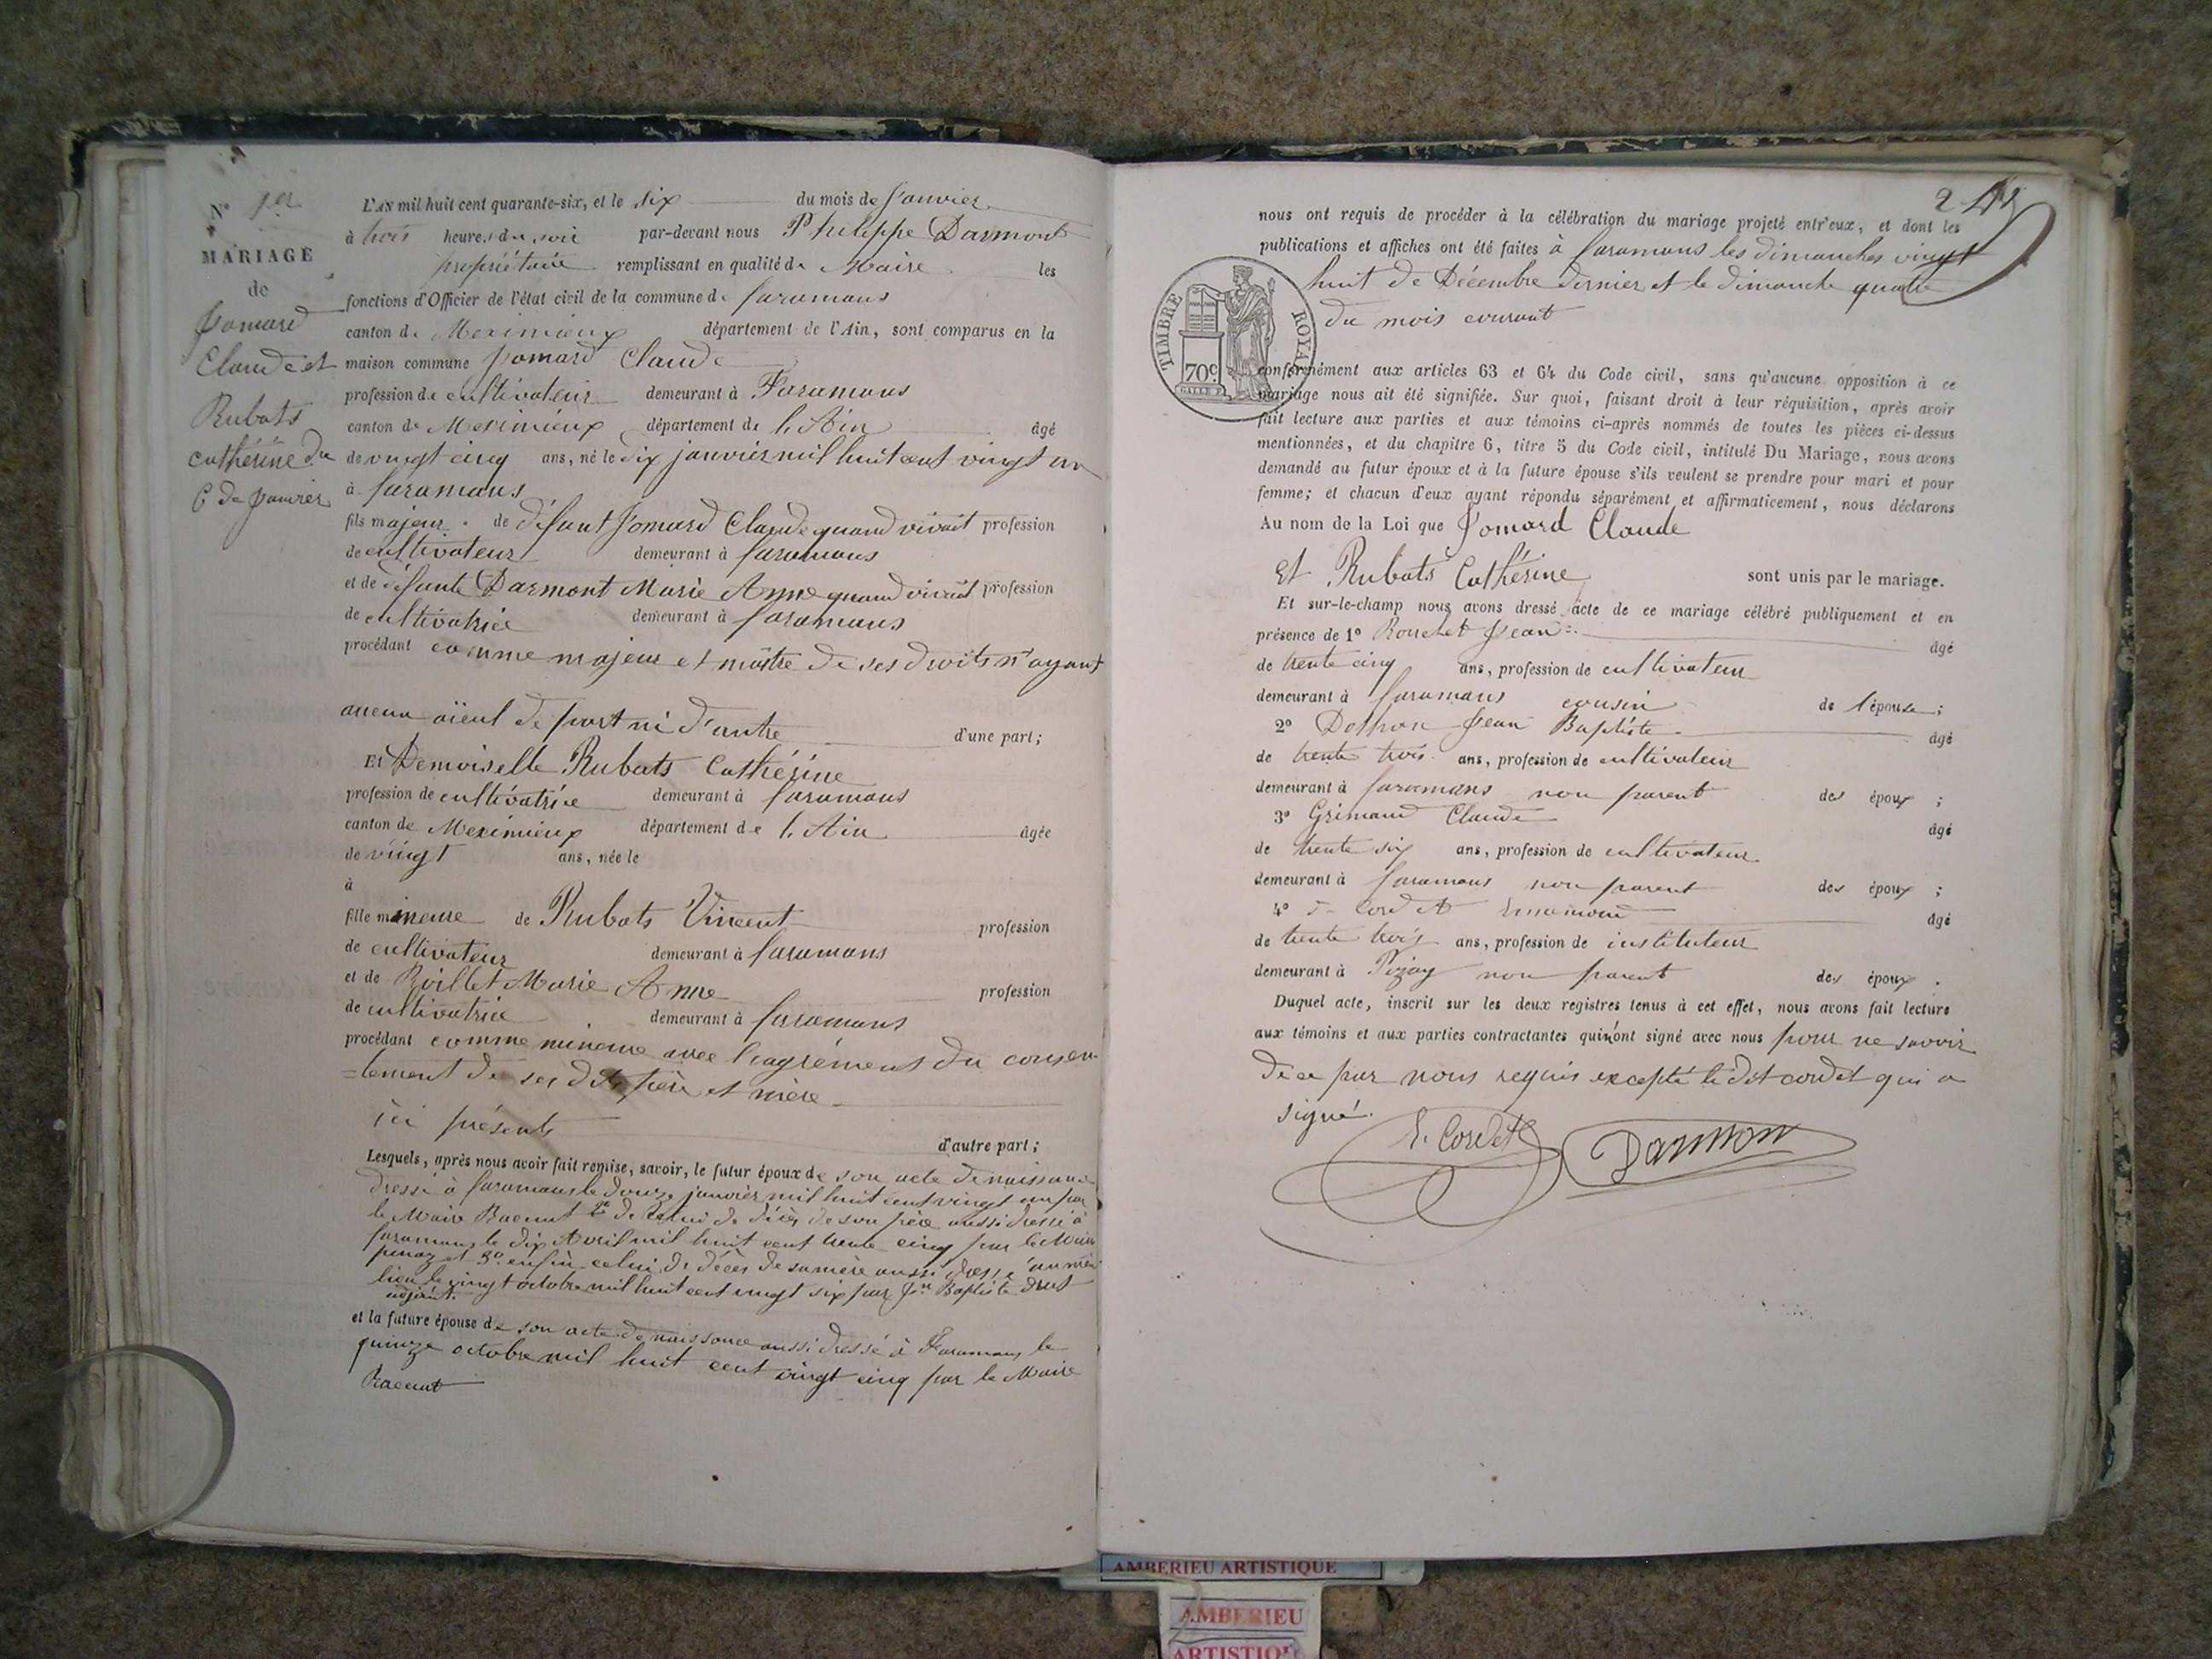 N° 1er
MARIAGE
de
Jomard
Claude et
Rubats
cathérine du
6 de Janvier
L'AN mil huit cent quarante-six, et le six du mois de Janvier
à trois heures du soir par-devant nous Philippe Darmont
propriétaire remplissant en qualité de Maire les
fonctions d'Officier de l'état civil de la commune de faramans
canton de Meximieux département de l'Ain, sont comparus en la
maison commune Jomard Claude
profession de cultivateur demeurant à Faramans
canton de Meximieux département de l'Ain âgé
de vingt cinq ans, né le dix janvier mil huit cent vingt un
à faramans
fils majeur de défunt Jomard Claude quand vivait profession
de cultivateur demeurant à faramans
et de défunte Darmont Marie Anne quand vivait profession
de cultivatrice demeurant à faramans
procédant comme majeur et maître de ses droits n'ayant
aucun aïeul de part ni d'autre d'une part;
Et Demoiselle Rubats Cathérine
profession de cultivatrice demeurant à faramans
canton de Meximieux département de l'Ain âgée
de vingt ans, née le
à
fille mineure de Rubats Vincent profession
de cultivateur demeurant à faramans
et de Roillet Marie Anne profession
de cultivatrice demeurant à faramans
procédant comme mineure avec l'agrément du consen
=tement de ses dits père et mère
ici présents d'autre part;
Lesquels, après nous avoir fait remise, savoir, le futur époux de son acte de naissance
dressé à faramans le douze janvier mil huit cent vingt un par
le Maire Raccut 2° de celui de décès de son père aussi dressé à
faramans le dix Avril mil huit cent trente cinq par le Maire
penoz et 3° enfin celui de décès de sa mère aussi dressé au mêm
lieu le vingt octobre mil huit cent vingt six par Jn Baptiste drut
adjoint.
et la future épouse de son acte de naissance aussi dressé à Faramans le
quinze octobre mil huit cent vingt cinq par le Maire
Raccut
2
nous ont requis de procéder à la célébration du mariage projeté entr'eux, et dont les
publications et affiches ont été faites à faramans les dimanches vingt
huit de Décembre dernier et le dimanche quatre
du mois courant
TIMBRE ROYAL
70c
conformément aux articles 63 et 64 du Code civil, sans qu'aucune opposition à ce
mariage nous ait été signifiée. Sur quoi, faisant droit à leur réquisition, après avoir
fait lecture aux parties et aux témoins ci-après nommés de toutes les pièces ci-dessus
mentionnées, et du chapitre 6, titre 5 du Code civil, intitulé Du Mariage, nous avons
demandé au futur époux et à la future épouse s'ils veulent se prendre pour mari et pour
femme; et chacun d'eux ayant répondu séparément et affirmativement, nous déclarons
Au nom de la Loi que Jomard Claude
Et Rubats Cathérine sont unis par le mariage.
Et sur-le-champ nous avons dressé acte de ce mariage célébré publiquement et en
présence de 1° Rouchet Jean âgé
de trente cinq ans, profession de cultivateur
demeurant à faramans cousin de l'épouse;
2° Jean Baptiste âgé
de trente trois ans, profession de cultivateur
demeurant à faramans non parent des époux;
3° Grimand Claude âgé
de trente six ans, profession de cultivateur
demeurant à faramans non parent des époux;
4° Cordet âgé
de trente trois ans, profession de instituteur
demeurant à Pizay non parent des époux.
Duquel acte, inscrit sur les deux registres tenus à cet effet, nous avons fait lecture
aux témoins et aux parties contractantes qui n'ont signé avec nous pour ne savoir
de ce par nous requis excepté le dit cordet qui a
signé.
E. Cordet Darmon
AMBERIEU ARTISTIQUE
AMBERIEU
ARTISTIQUE